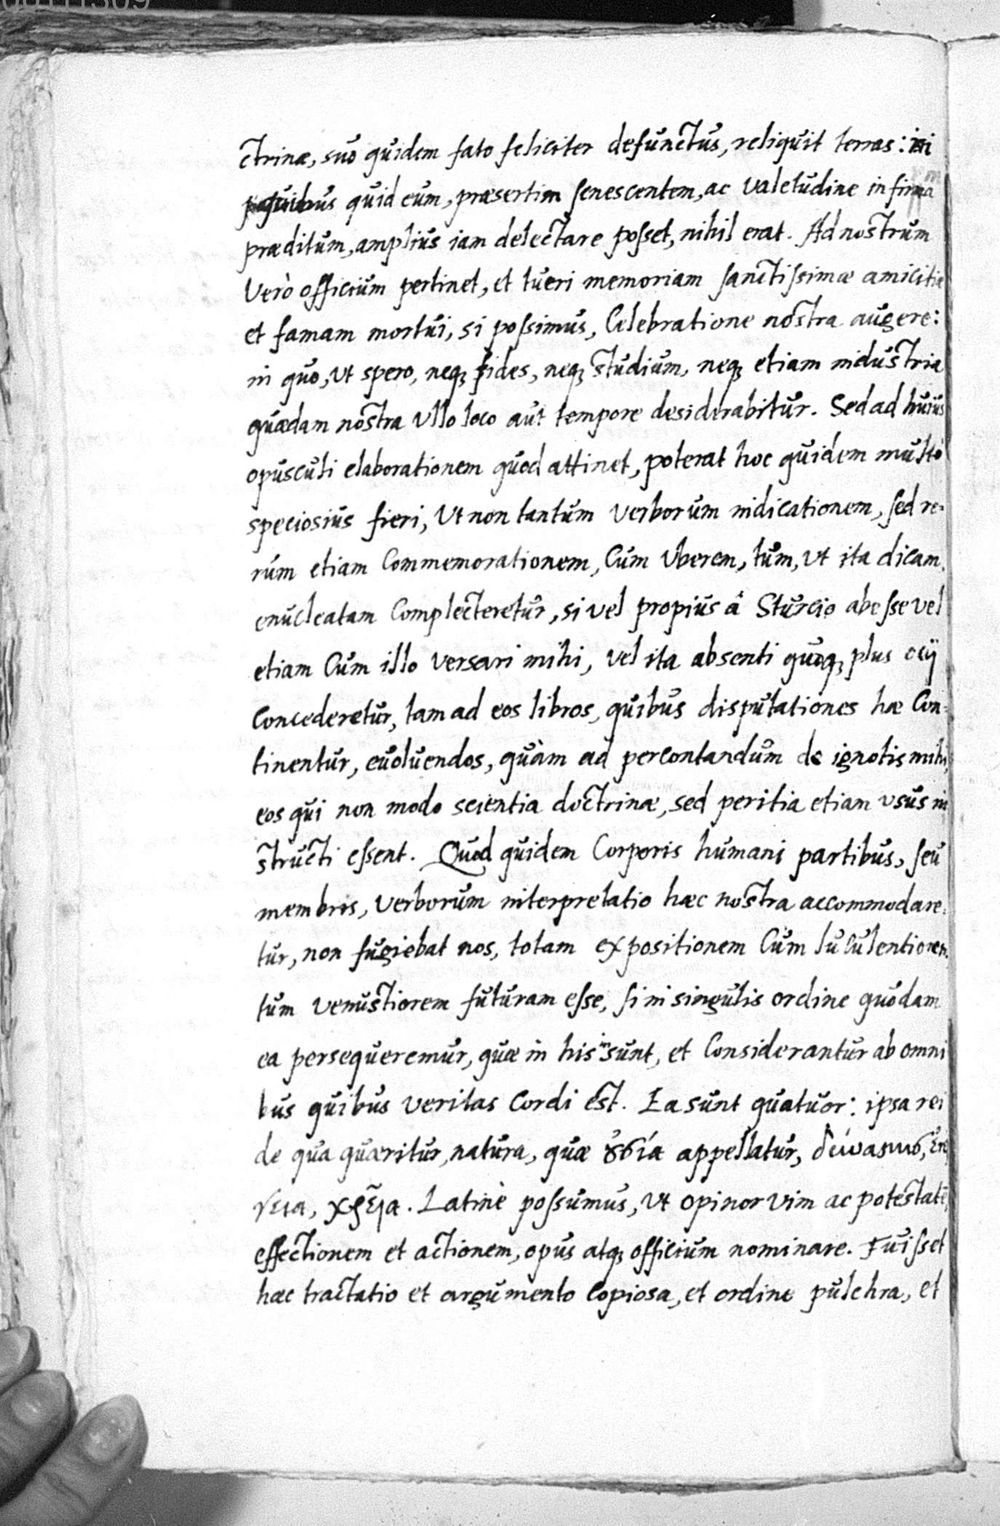 ctrinæ, suo quidem fato feliciter defunctus, reliquit terras: in
quibus quid eum, præsertim senescentem, ac valetudine infirma
præditum, amplius iam delectare posset, nihil erat. Ad nostrum
verò officium pertinet, et tueri memoriam sanctissimæ amicitiæ
et famam mortui, si possimus, Celebratione nostra augere:
in quo, ut spero, neq; fides, neq; studium, neq; etiam industria
quædam nostra ullo loco aut tempore desiderabitur. Sed ad huius
opusculi elaborationem quod attinet, poterat hoc quidem multò
speciosius fieri, Ut non tantum verborum indicationem, sed re-
rum etiam Commemorationem, Cum Uberem, tum, ut ita dicam,
enucleatam Complecteretur, si vel propius â Sturcio abesse vel
etiam Cum illo versari mihi, vel ita absenti quoq; plus ocij
Concederetur, tam ad eos libros, quibus disputationes hæ Con-
tinentur, evoluendos, quàm ad percontandum de ignotis mihi,
eos qui non modo scientia doctrinæ, sed peritia etiam usus in
structi essent. Quod quidem Corporis humani partibus, seu
membris, verborum interpretatio hæc nostra accommodare-
tur, non fugiebat nos, totam expositionem Cum luculentiorem
tum venustiorem futuram esse, si in singulis ordine quodam
ea persequeremur, quæ in his insunt, et Considerantur ab omni
bus quibus veritas Cordi est. Ea sunt quatuor: ipsa rei
de qua quæritur, natura, quæ ȣ̓σία appellatur, δύναμις, ἐνέρ
γεια, χρεία. Latinè possumus, ut opinor vim ac potestatē
effectionem et actionem, opus atq; officium nominare. Fuisset
hæc tractatio et argumento Copiosa, et ordine pulchra, et